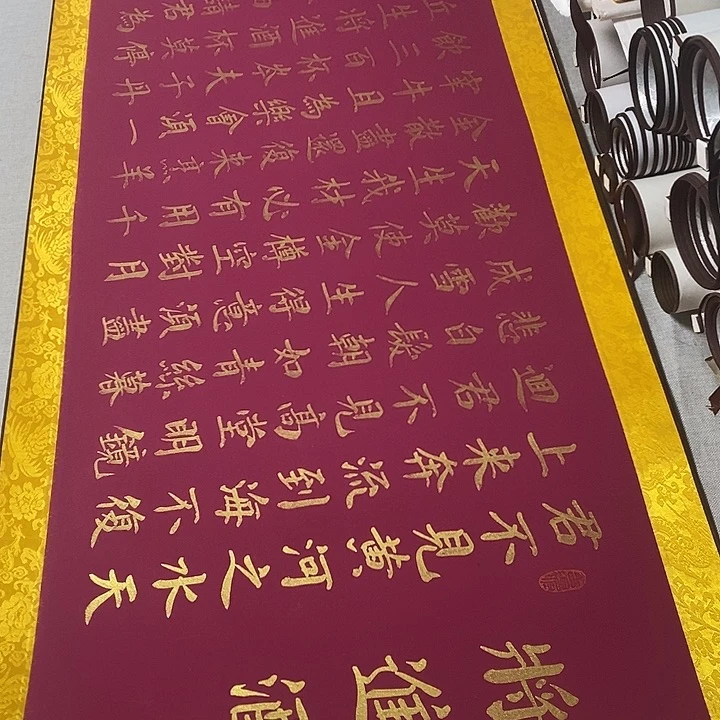 將進酒
君不見黃河之水天
上來奔流到海不復
迴君不見高堂明鏡
悲白髮朝如青絲暮
成雪人生得意須盡
歡莫使金樽空對月
天生我材必有用千
金散盡還復來烹羊
宰牛且為樂會須一
飲三百杯岑夫子丹
丘生將進酒杯莫停
請君為